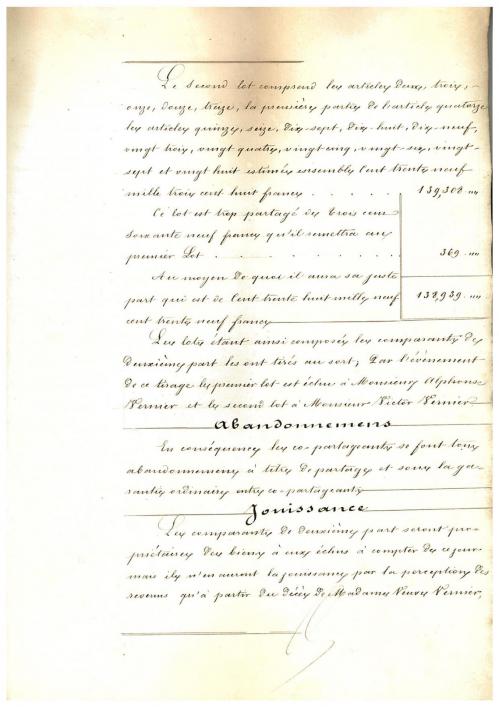 Le second lot comprend les articles deux, trois,
onze, douze, treize, la première partie de l'article quatorze
les articles quinze, seize, dix-sept, dix-huit, dix-neuf,
vingt trois, vingt quatre, vingt-cinq, vingt-six, vingt-
sept et vingt huit estimés ensemble Cent trente neuf
mille trois cent huit francs . . . . . 139,308 "
Ce lot est trop partagé de trois cent
soixante neuf francs qu'il remettra au
premier Lot . . . . . . . . 369 "
Au moyen de quoi il aura sa juste
part qui est de Cent trente huit mille neuf 138,939 "
cent trente neuf francs
Les lots étant ainsi composés les comparants de
deuxième part les ont tirés au sort; Par l'événement
de ce tirage le premier lot est échu à Monsieur Alphonse
Vernier et le second lot à Monsieur Victor Vernier
Abandonnemens
En conséquence les co-partageants se font tous
abandonnemens à titre de partage et sous la ga-
rantie ordinaire entre co-partageants
Jouissance
Les comparants de deuxième part seront pro-
priétaires des biens à eux échus à compter de ce jour
mais ils n'en auront la jouissance par la perception des
revenus qu'à partir du décès de Madame Veuve Vernier,